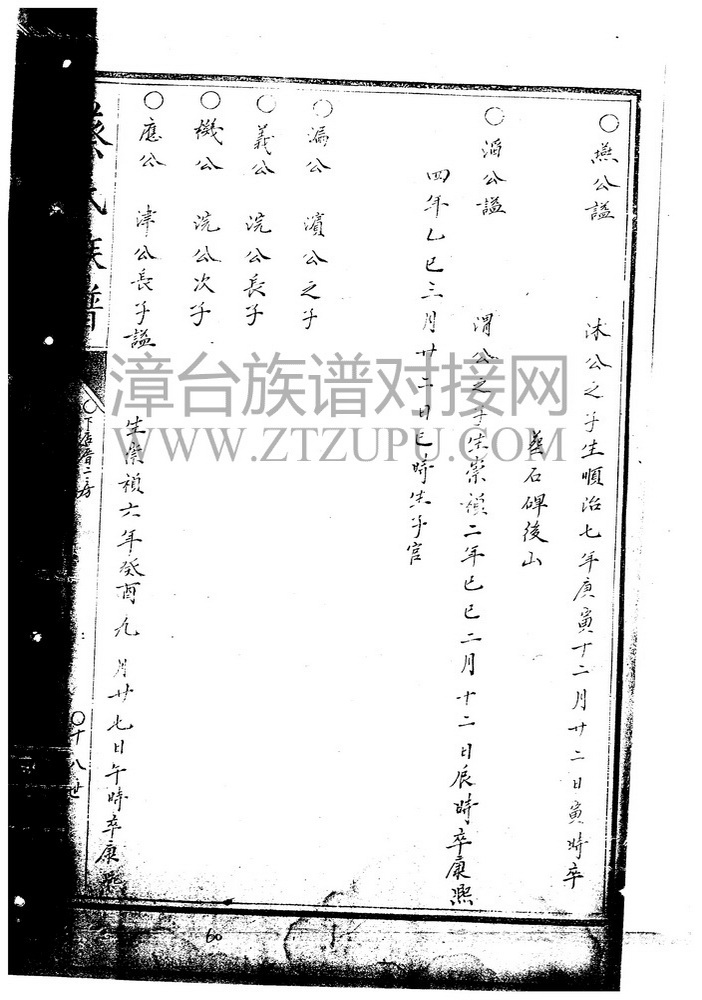 ○燕公諡 沐公之子生順治七年庚寅十二月廿二日寅時卒
葬石碑後山
○滔公諡 渭公之子生崇禎二年己巳二月十二日辰時卒康熙
四年乙巳三月廿二日巳時生子官
○漏公 濱公之子
○義公 浣公長子
○機公 浣公次子
○應公 津公長子諡 生崇禎六年癸酉九月廿七日午時卒康熙
氏族譜
○下厝二房
○十八世
60
漳台族谱对接网
WWW.ZTZUPU.COM